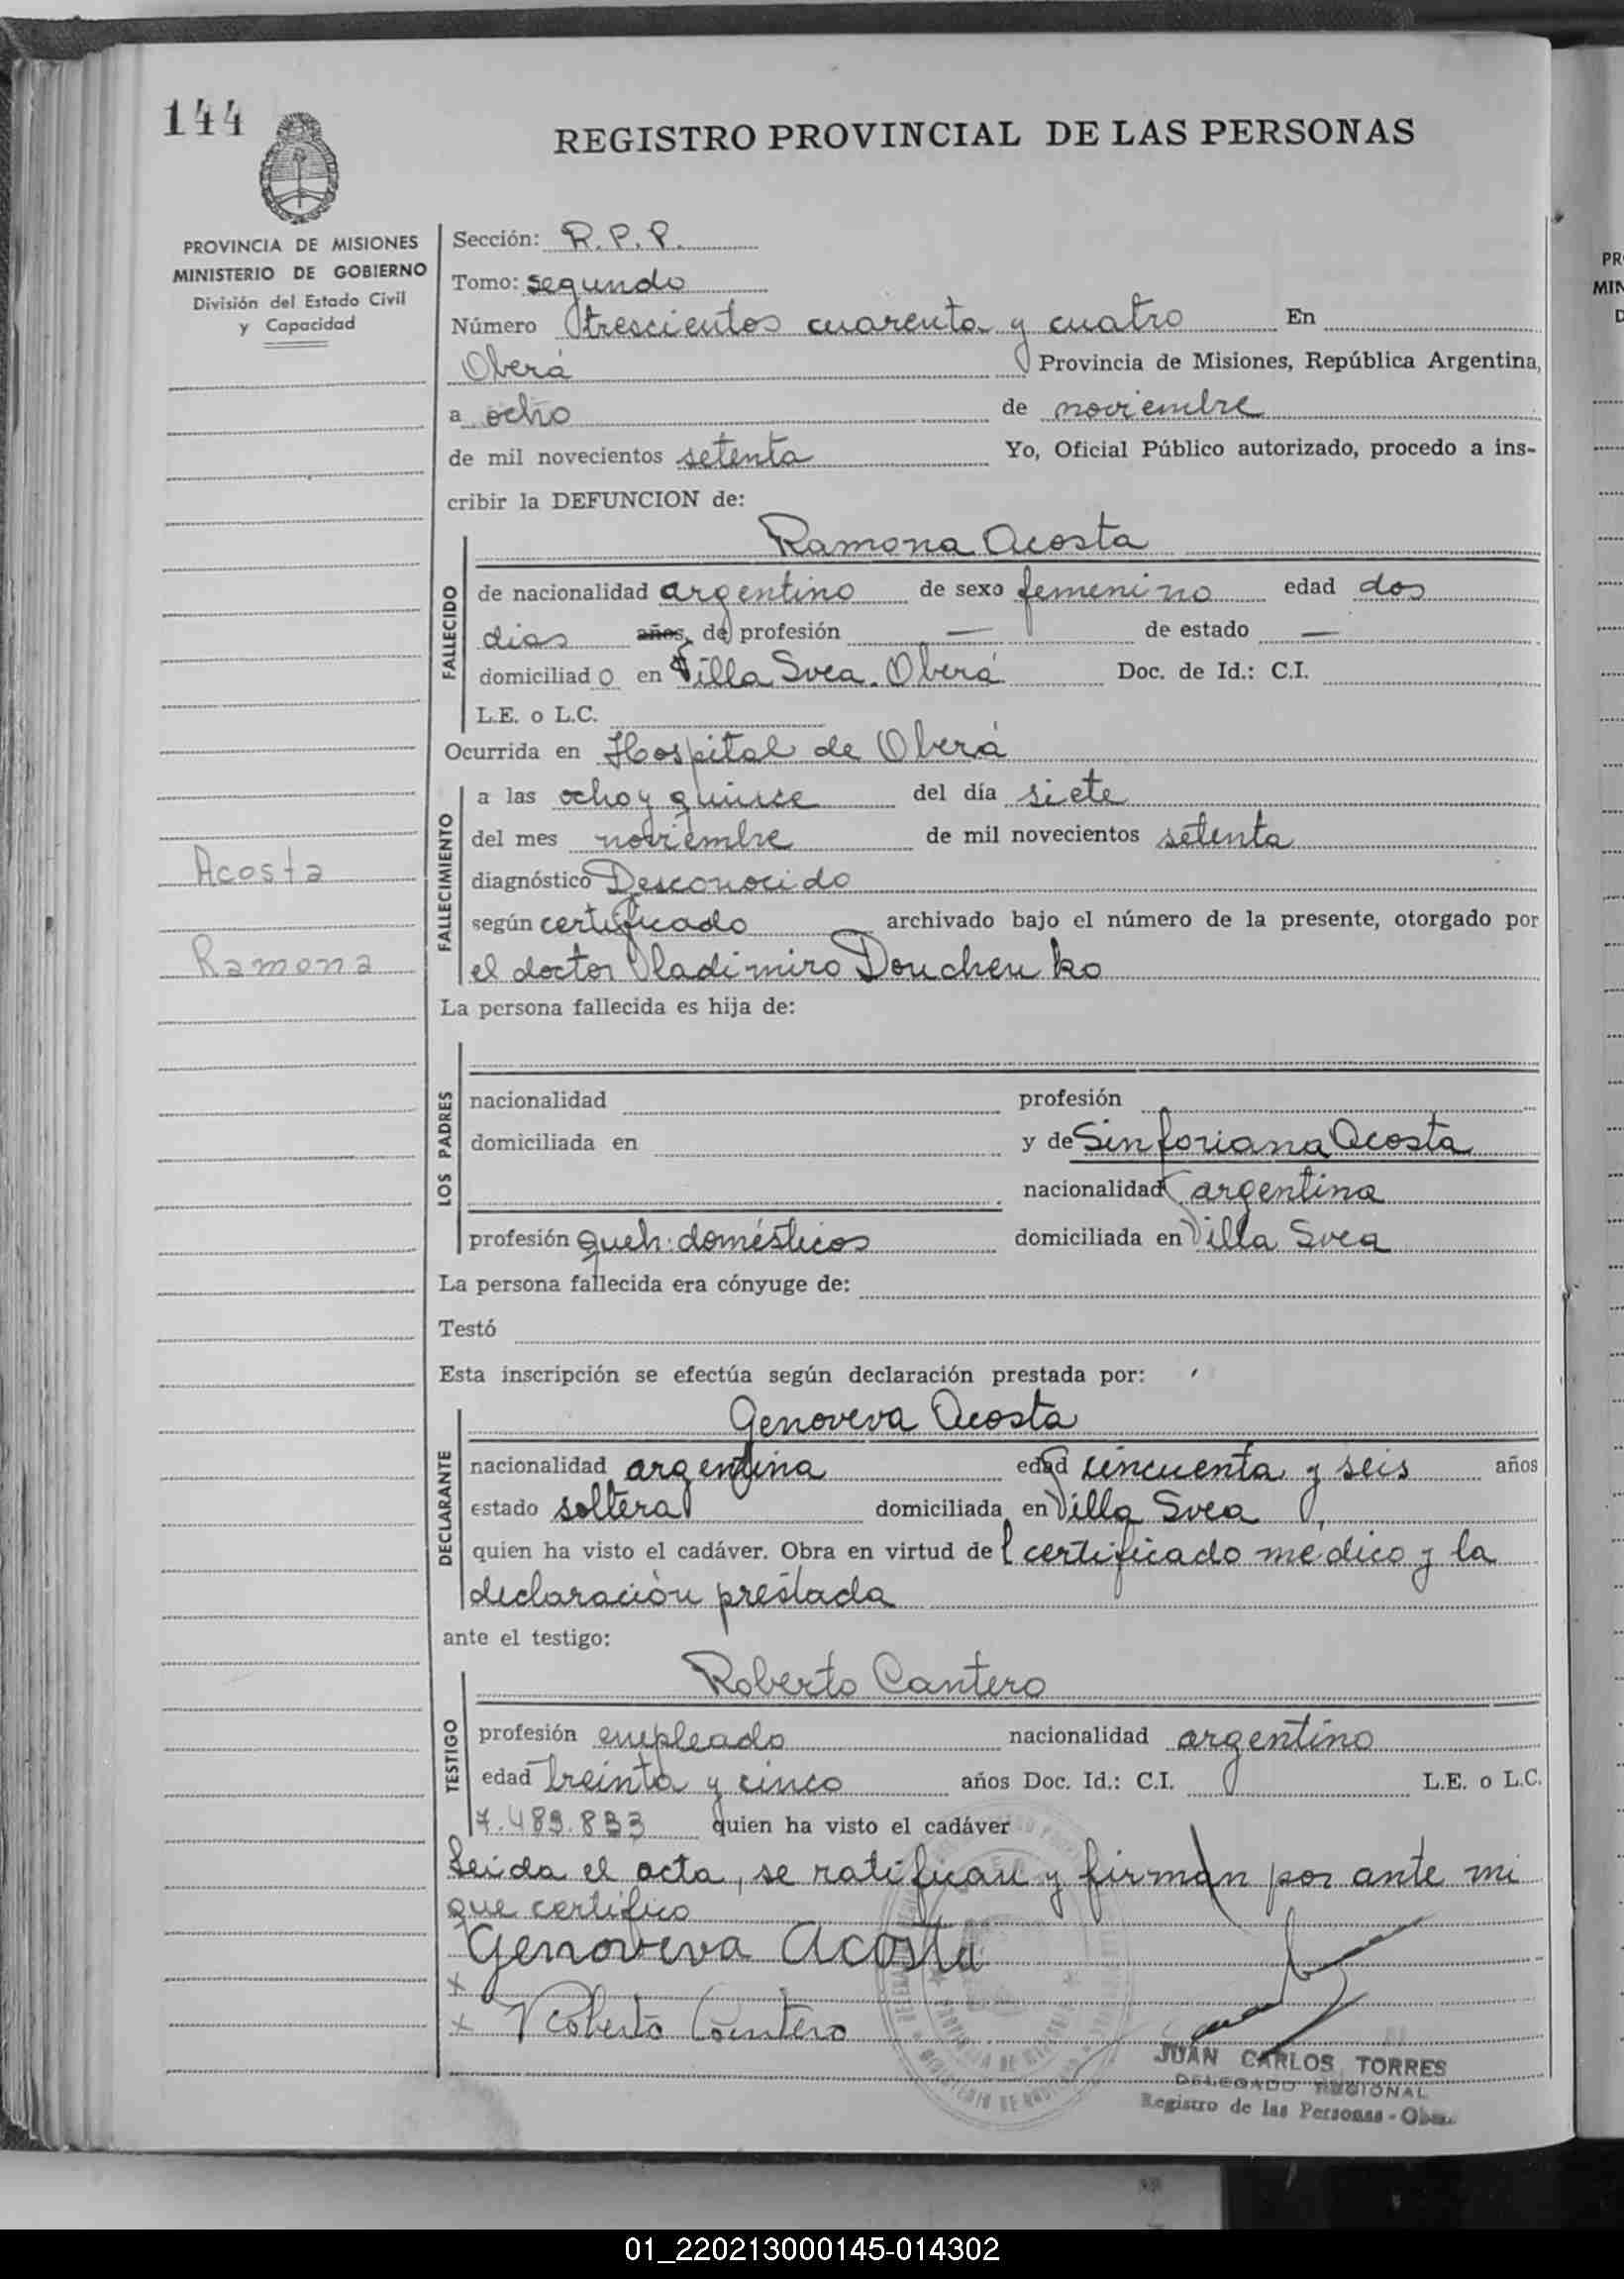 144
REGISTRO PROVINCIAL DE LAS PERSONAS
PROVINCIA DE MISIONES
MINISTERIO DE GOBIERNO
División del Estado Civil
y Capacidad
Sección: R.P.P.
Tomo: segundo
Número trescientos cuarenta y cuatro En
Oberá Provincia de Misiones, República Argentina,
a ocho de noviembre
de mil novecientos setenta Yo, Oficial Público autorizado, procedo a ins-
cribir la DEFUNCION de:
Ramona Acosta
FALLECIDO
de nacionalidad argentino de sexo femenino edad dos
dias años, de profesión — de estado —
domiciliado en Villa Svea. Oberá Doc. de Id.: C.I.
L.E. o L.C.
Ocurrida en Hospital de Oberá
FALLECIMIENTO
a las ocho y quince del día siete
del mes noviembre de mil novecientos setenta
diagnóstico Desconocido
según certificado archivado bajo el número de la presente, otorgado por
el doctor Vladimiro Douchenko
Acosta
Ramona
La persona fallecida es hija de:
LOS PADRES
nacionalidad profesión
domiciliada en y de Sinforiana Acosta
nacionalidad argentina
profesión queh. domésticos domiciliada en Villa Svea
La persona fallecida era cónyuge de:
Testó
Esta inscripción se efectúa según declaración prestada por:
Genoveva Acosta
DECLARANTE
nacionalidad argentina edad cincuenta y seis años
estado soltera domiciliada en Villa Svea,
quien ha visto el cadáver. Obra en virtud del certificado medico y la
declaración prestada
ante el testigo:
Roberto Cantero
TESTIGO
profesión empleado nacionalidad argentino
edad treinta y cinco años Doc. Id.: C.I. L.E. o L.C.
7.489.833 quien ha visto el cadáver
Leida el acta, se ratifican y firman por ante mi
que certifico
Genoveva Acosta
x
x Roberto Cantero
JUAN CARLOS TORRES
DELEGADO REGIONAL
Registro de las Personas - Oberá
01_220213000145-014302